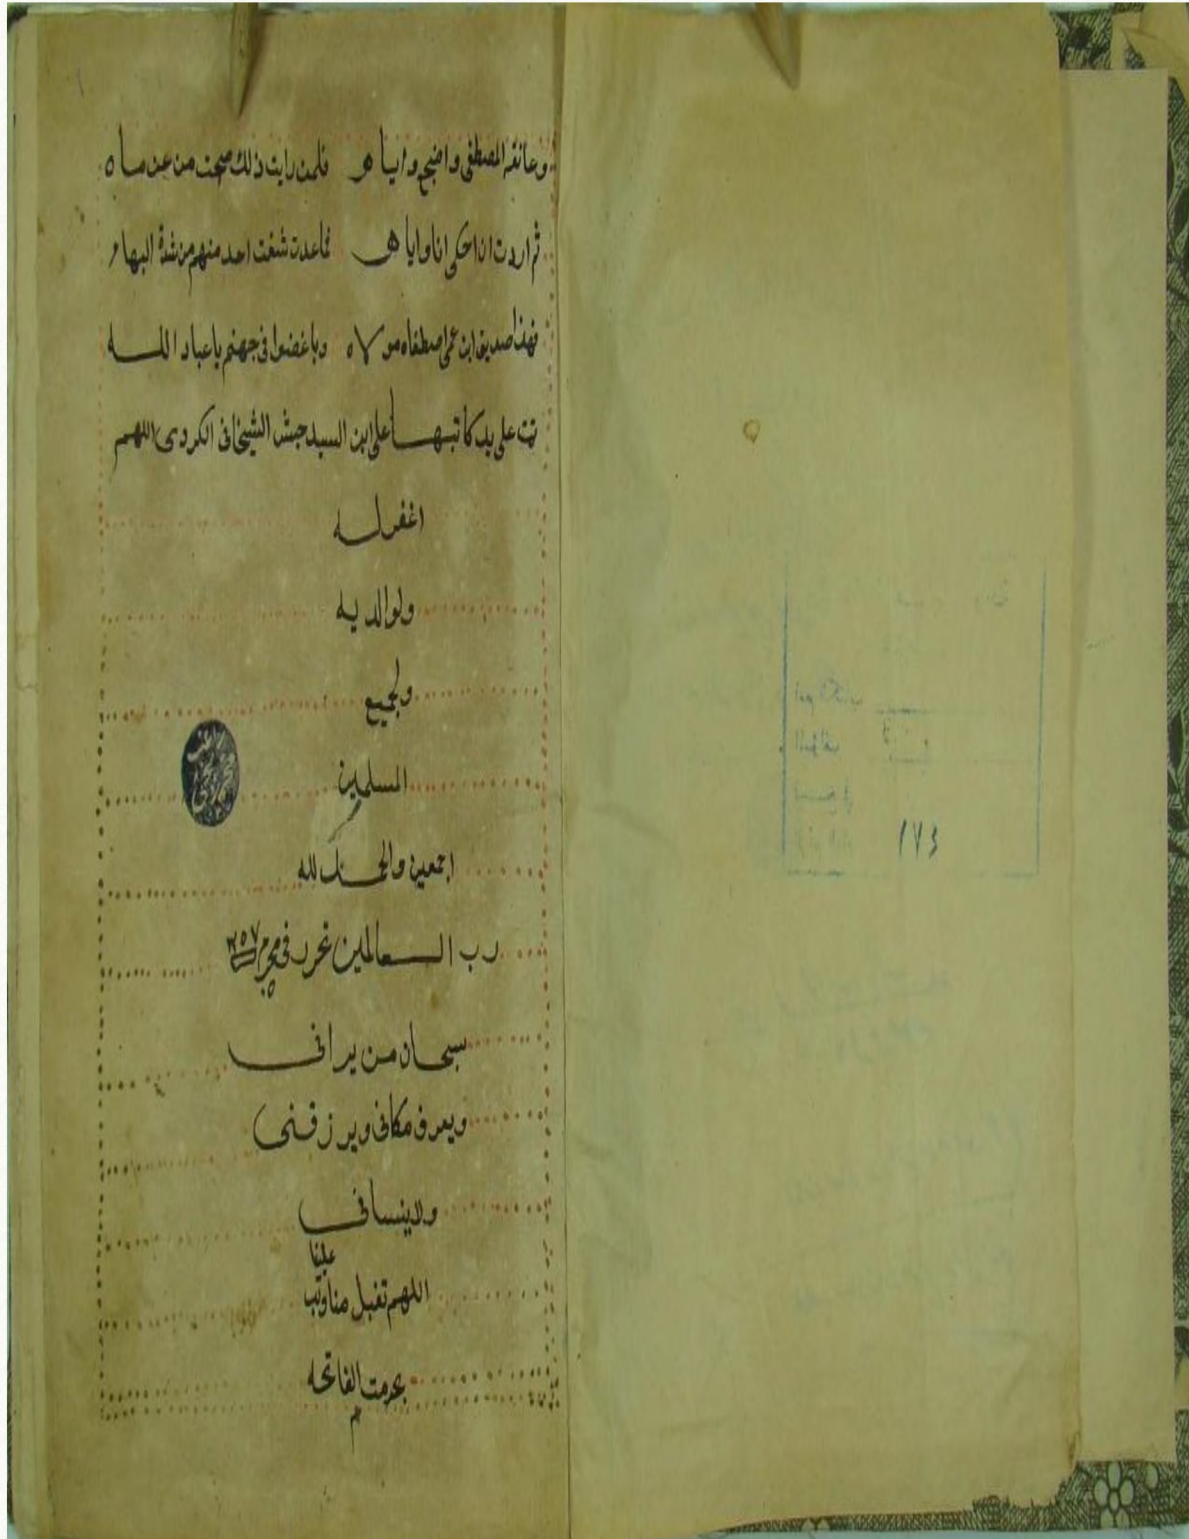 وعانقه المصطفى واضجع وايا هو فلمن رايت ذلك صحت من عزماه
ثم اردت ان احكى انا وايا هم فماعدت شفت احد منهم من شدة البها
فهذا صديق ابن عمى اصطفاه مولاه وباغضوا فى جهنم ياعباد الله
تمت على يد كاتبها على ابن السيد حبش الشيخانى الكردى اللهم
اغفر له
ولوالديه
ولجميع
المسلمين
اجمعين والحمد لله
رب العالمين تحرر فى محرم
سبحان من يرانى
ويعرف مكانى ويرزقنى
ولاينسانى
اللهم تقبل منا وتب علينا
بحرمت الفاتحه
م
١٧٤